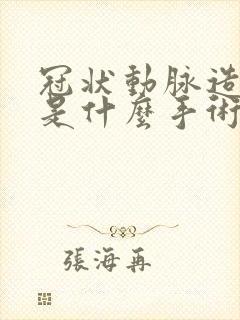 冠狀動脈造
是什麼手術
張海再